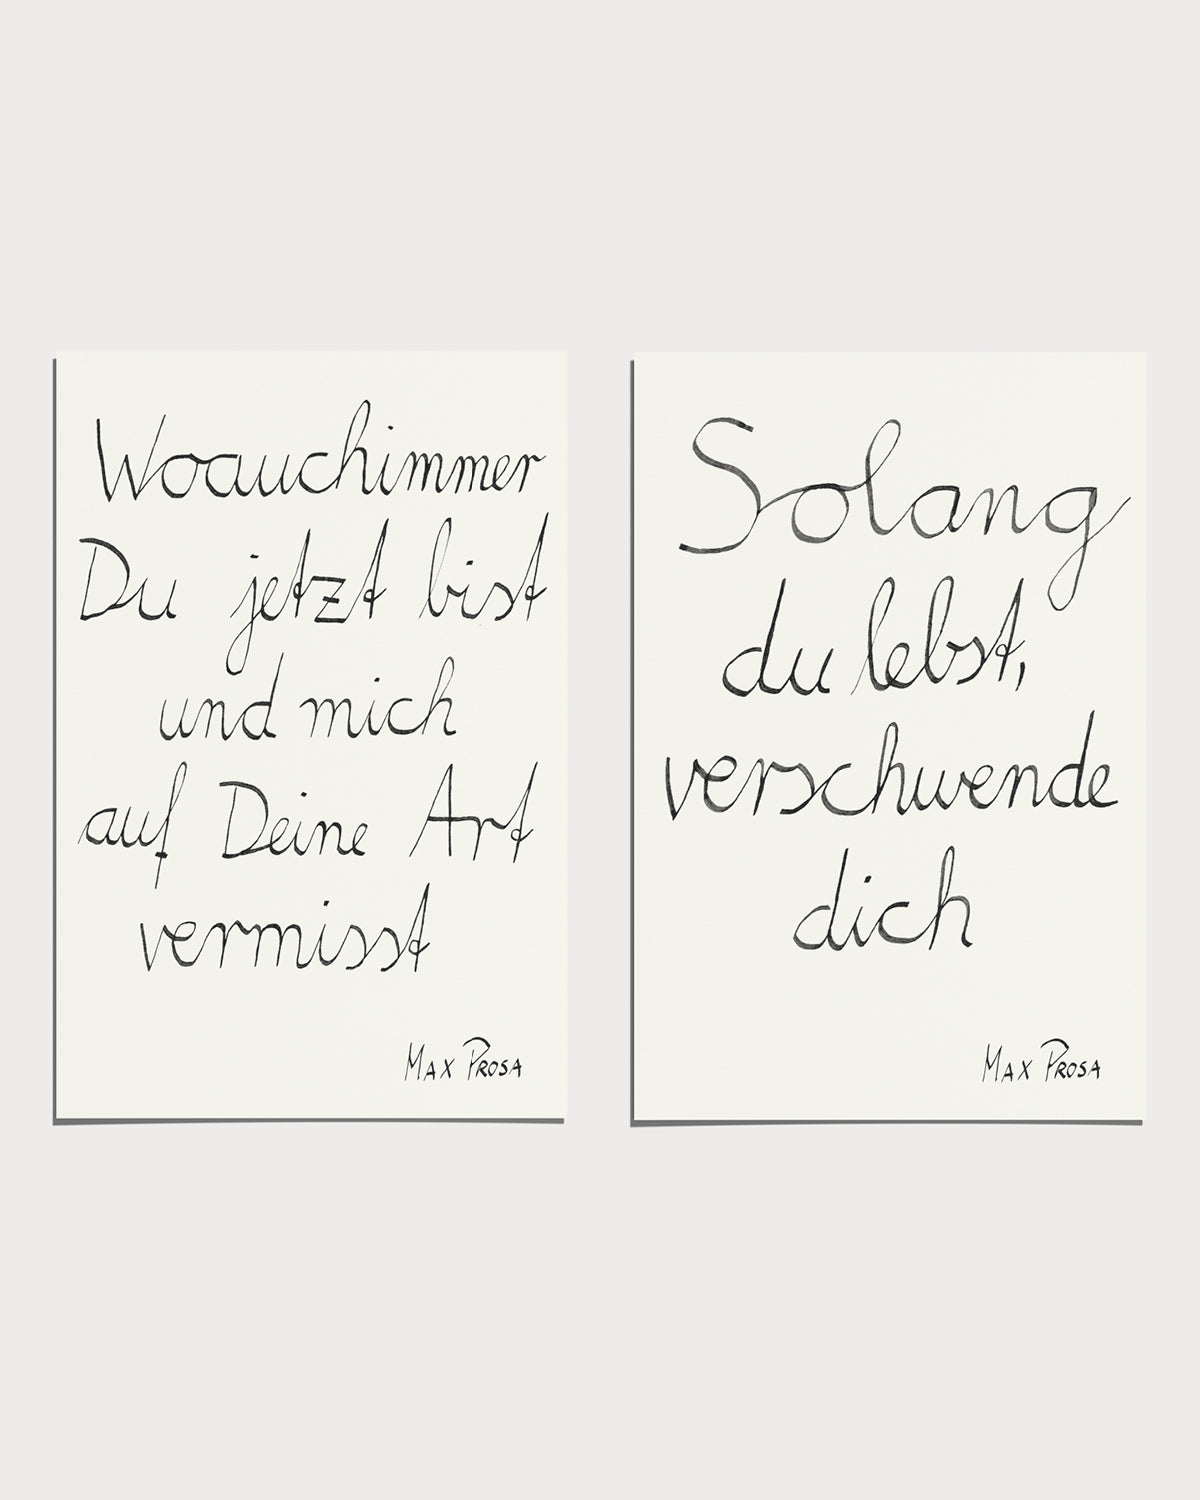 Woauchimmer
Du jetzt bist
und mich
auf Deine Art
vermisst
MAX PROSA
Solang
du lebst,
verschwende
dich
MAX PROSA